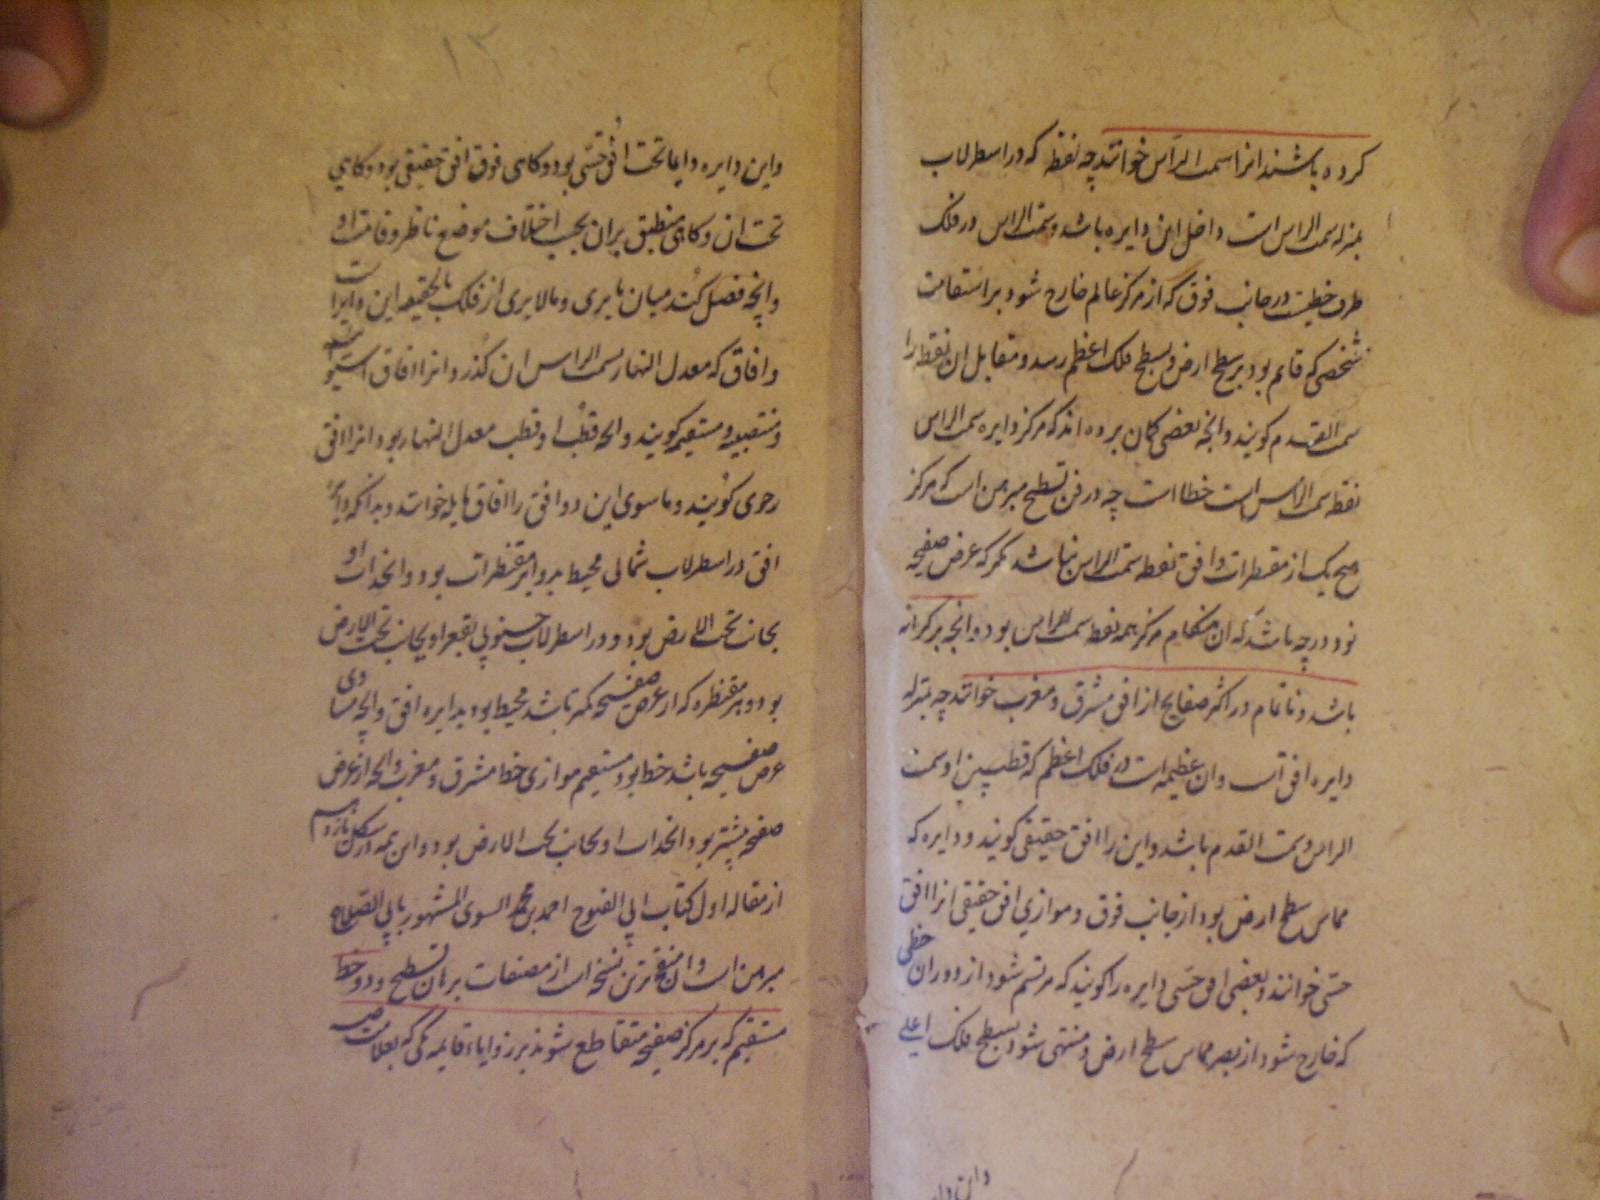 کرده باشند انرا سمت الراس خوانند چه نقطه که در اسطرلاب
بمنزله سمت الراس است داخل این دایره باشد و سمت الراس در فلک
طرف خطیست در جانب فوق که از مرکز عالم خارج شود بر استقامت
شخصی که قایم بود بر سطح ارض و بسطح فلک اعظم رسد و مقابل ان نقطه را
سمت القدم کویند و انچه بعضی کمان برده اند که مرکز دایره سمت الراس
نقطه سمت الراس است خطا است چه در فن تسطیح مبرهن است که مرکز
هیچ یک از مقنطرات و افق نقطه سمت الراس نباشد مکر که عرض صفیحه
نود درچه باشد که ان هنکام مرکز همه نقطه سمت الراس بود و انچه بر کرانه
باشد و ناتمام در اکثر صفایح از افق مشرق و مغرب خوانند چه بمنزله
دایره افق است وان عظیمه است در فلک اعظم که قطبین او سمت
الراس و سمت القدم باشد و این را افق حقیقی کویند و دایره که
مماس سطح ارض بود از جانب فوق و موازی افق حقیقی انرا افق
حسی خوانند و بعضی افق حسی دایره را کویند که مرتسم شود از دوران خطی
که خارج شود از بصر مماس سطح ارض و منتهی شود بسطح فلک اعلی
واین دایره
۱۳
واین دایره دایما تحت افق حسی بود و کاهی فوق افق حقیقی بود و کاهی
تحت ان و کاهی منطبق بران بحسب اختلاف موضع ناظر و قامت او
وانچه فصل کند میان مایری و مالایری از فلک بالحقیقه این دایره است
و افاق که معدل النهار بسمت الراس ان کذرد و انرا افاق استوا
و منتصبه و مستقیم کویند و انچه قطب او قطب معدل النهار بود انرا افق
رحوی کویند و ماسوی این دو افق را افاق مایله خوانند و بدانکه دایره
افق در اسطرلاب شمالی محیط بدوایر مقنطرات بود و انحداب او
بجانب تحت الارض بود و در اسطرلاب جنوبی تقعر او بجانب تحت الارض
بود و هر مقنطره که از عرض صفیحه کمتر باشد محیط بود بدایره افق و انچه مساوی
عرض صفیحه باشد خط بود مستقیم موازی خط مشرق و مغرب و انچه از عرض
صفیحه بیشتر بود انحداب او بجانب تحت الارض بود و این همه از شکل یازدهم
از مقاله اول کتاب ابی الفتوح احمد بن محمد السوی المشهور بابی الصلاح
مبرهن است وان متخرترین نسخه است از مصنفات برهان تسطیح و دو خط
مستقیم که بر مرکز صفیحه متقاطع شوند بر زوایاء قایمه یکی که بعلامت